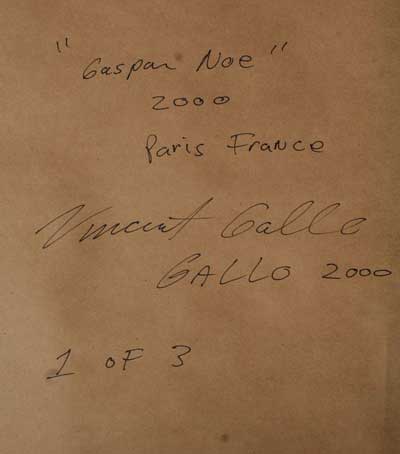 "Gaspar Noe"
2000
Paris France
Vincent Gallo
GALLO 2000
1 OF 3